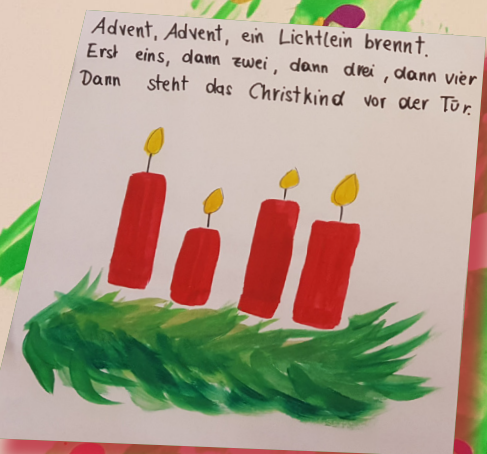 Advent, Advent, ein Lichtlein brennt.
Erst eins, dann zwei, dann drei, dann vier
Dann steht das Christkind vor der Tür.